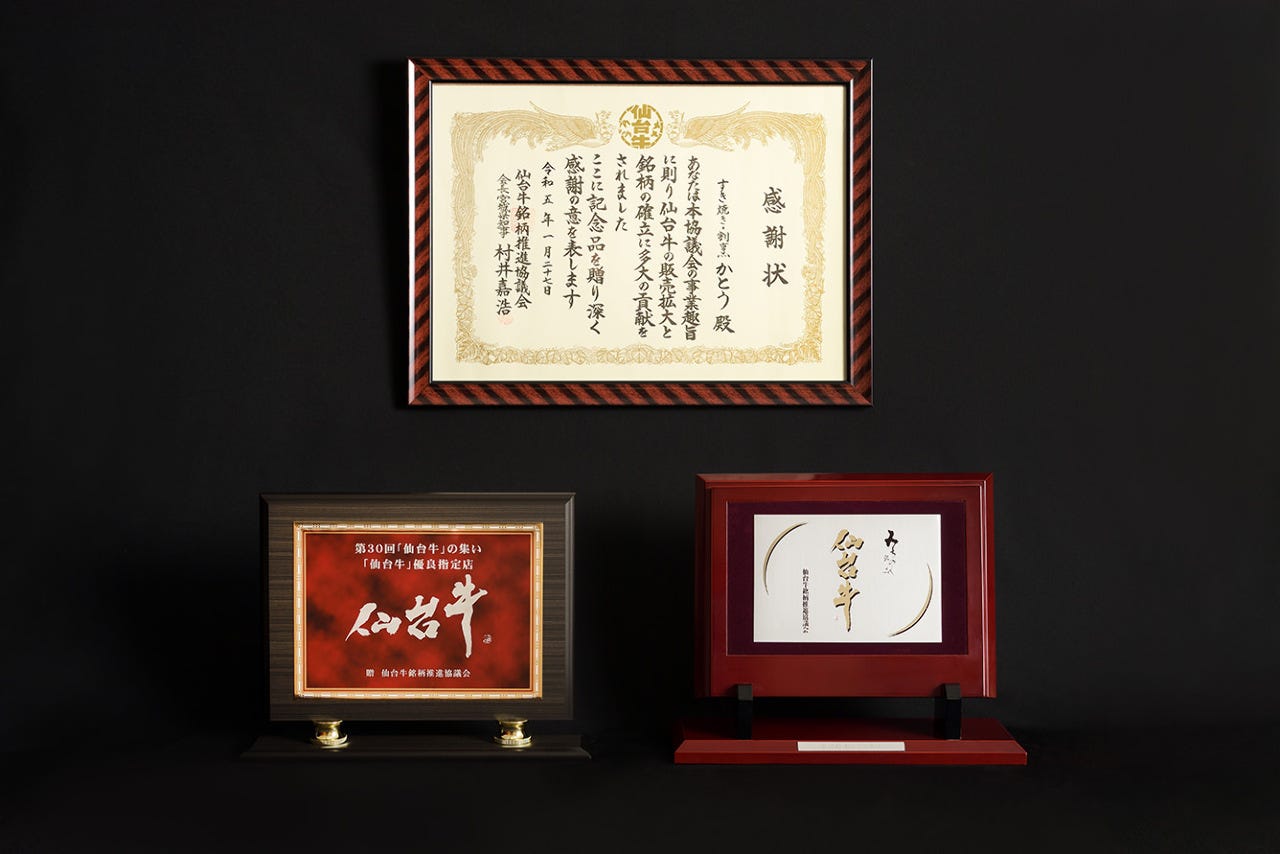 仙台牛
感謝状
すき焼き・割烹 かとう 殿
あなたは本協議会の事業趣旨
に則り仙台牛の販売拡大と
銘柄の確立に多大の貢献を
されました
ここに記念品を贈り深く
感謝の意を表します
令和五年一月二十七日
仙台牛銘柄推進協議会
会長宮城県知事 村井嘉浩
第30回「仙台牛」の集い
「仙台牛」優良指定店
仙台牛
贈 仙台牛銘柄推進協議会
仙台牛
仙台牛銘柄推進協議会